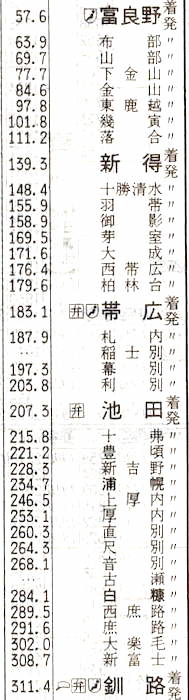 57.6 富良野 着発
63.9 布部 〃
69.7 山部 〃
77.7 下金山 〃
84.6 金山 〃
97.8 東鹿越 〃
101.8 幾寅 〃
111.2 落合 〃
139.3 新得 着発
148.4 十勝清水 〃
155.9 羽帯 〃
158.9 御影 〃
169.5 芽室 〃
171.6 大成 〃
176.4 西帯広 〃
179.6 柏林台 〃
183.1 弁 帯広 着発
187.9 札内 〃
… 稲士別 〃
197.3 幕別 〃
203.8 利別 〃
207.3 弁 池田 着発
215.8 十弗 〃
221.2 豊頃 〃
228.3 新吉野 〃
234.7 浦幌 〃
246.5 上厚内 〃
253.1 厚内 〃
260.3 直別 〃
264.3 尺別 〃
268.1 音別 〃
… 古瀬 〃
284.1 白糠 〃
289.5 西庶路 〃
291.6 庶路 〃
302.0 大楽毛 〃
308.7 新富士 〃
311.4 弁 釧路 着発